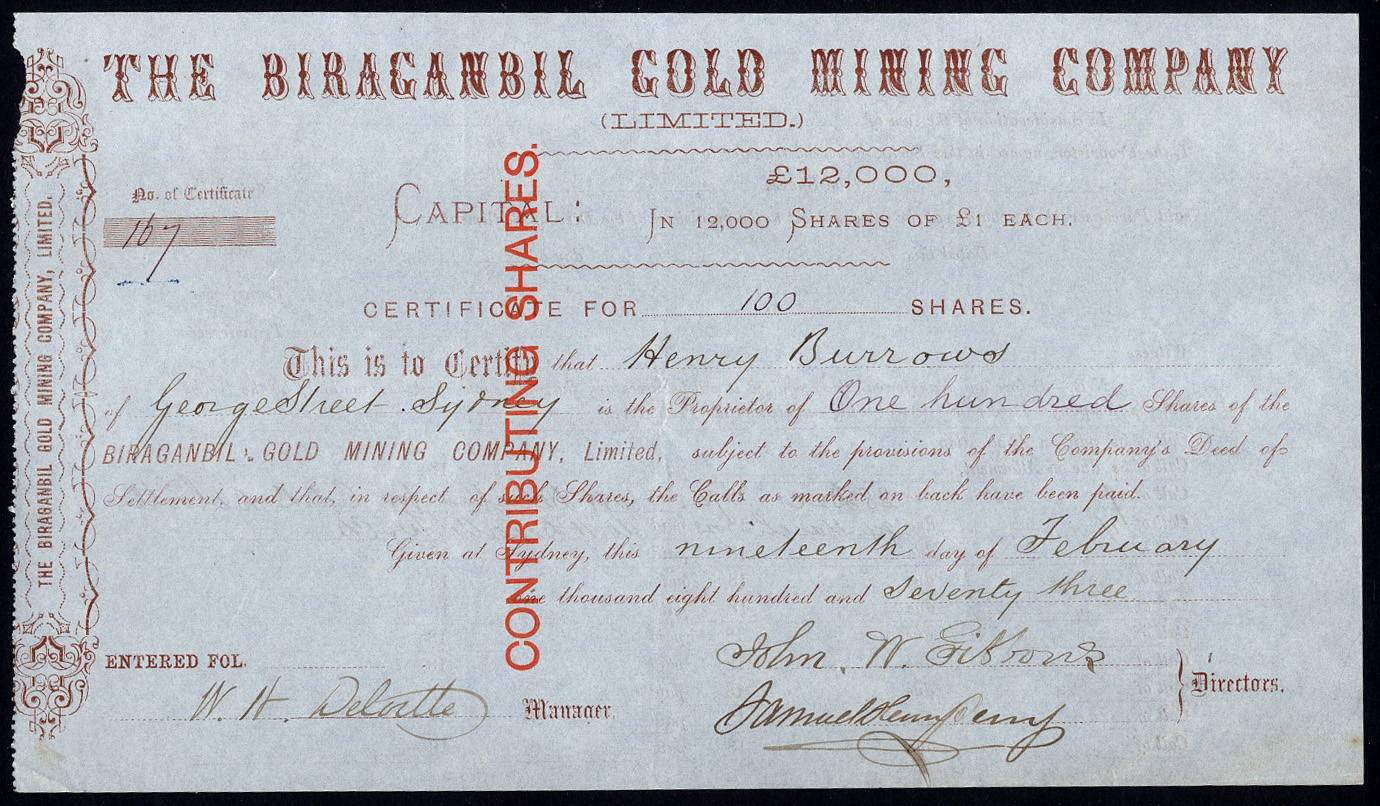 THE BIRAGANBIL GOLD MINING COMPANY
(LIMITED.)
THE BIRAGANBIL GOLD MINING COMPANY, LIMITED.
No. of Certificate
167
CAPITAL:
£12,000,
IN 12,000 SHARES OF £1 EACH.
CONTRIBUTING SHARES.
CERTIFICATE FOR 100 SHARES.
This is to Certify that Henry Burrows
of George Street Sydney is the Proprietor of One hundred Shares of the
BIRAGANBIL GOLD MINING COMPANY, Limited, subject to the provisions of the Company's Deed of
Settlement, and that, in respect of such Shares, the Calls as marked on back have been paid.
Given at Sydney, this nineteenth day of February
one thousand eight hundred and Seventy three
John. W. Gibbons
ENTERED FOL.
W. H. Deloitte Manager.
Samuel
Directors.